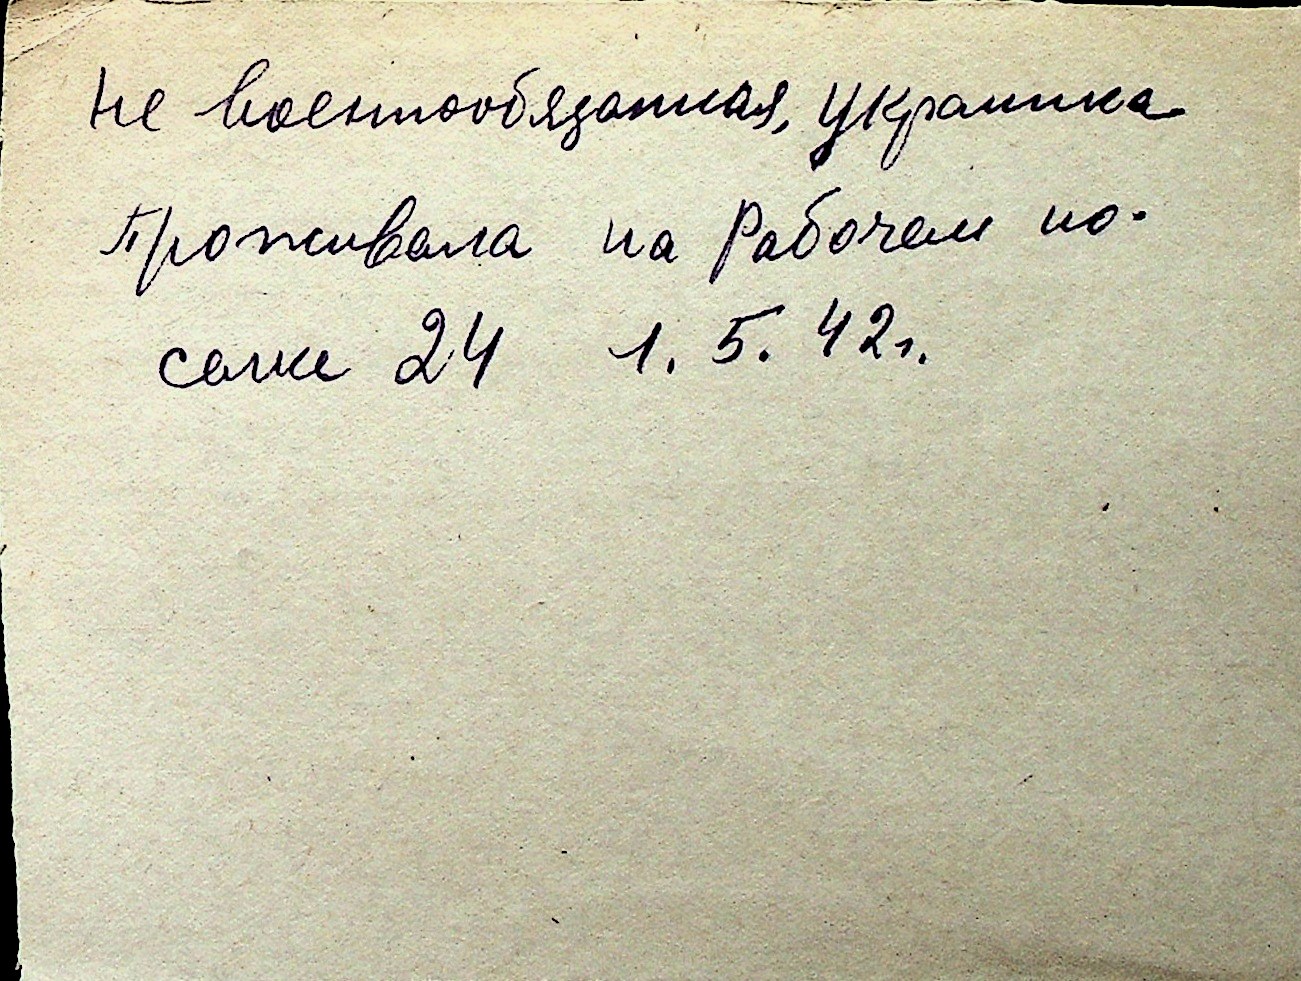 Не военнообязанная, украинка
Проживала на Рабочем по-
селке 24 1. 5. 42г.